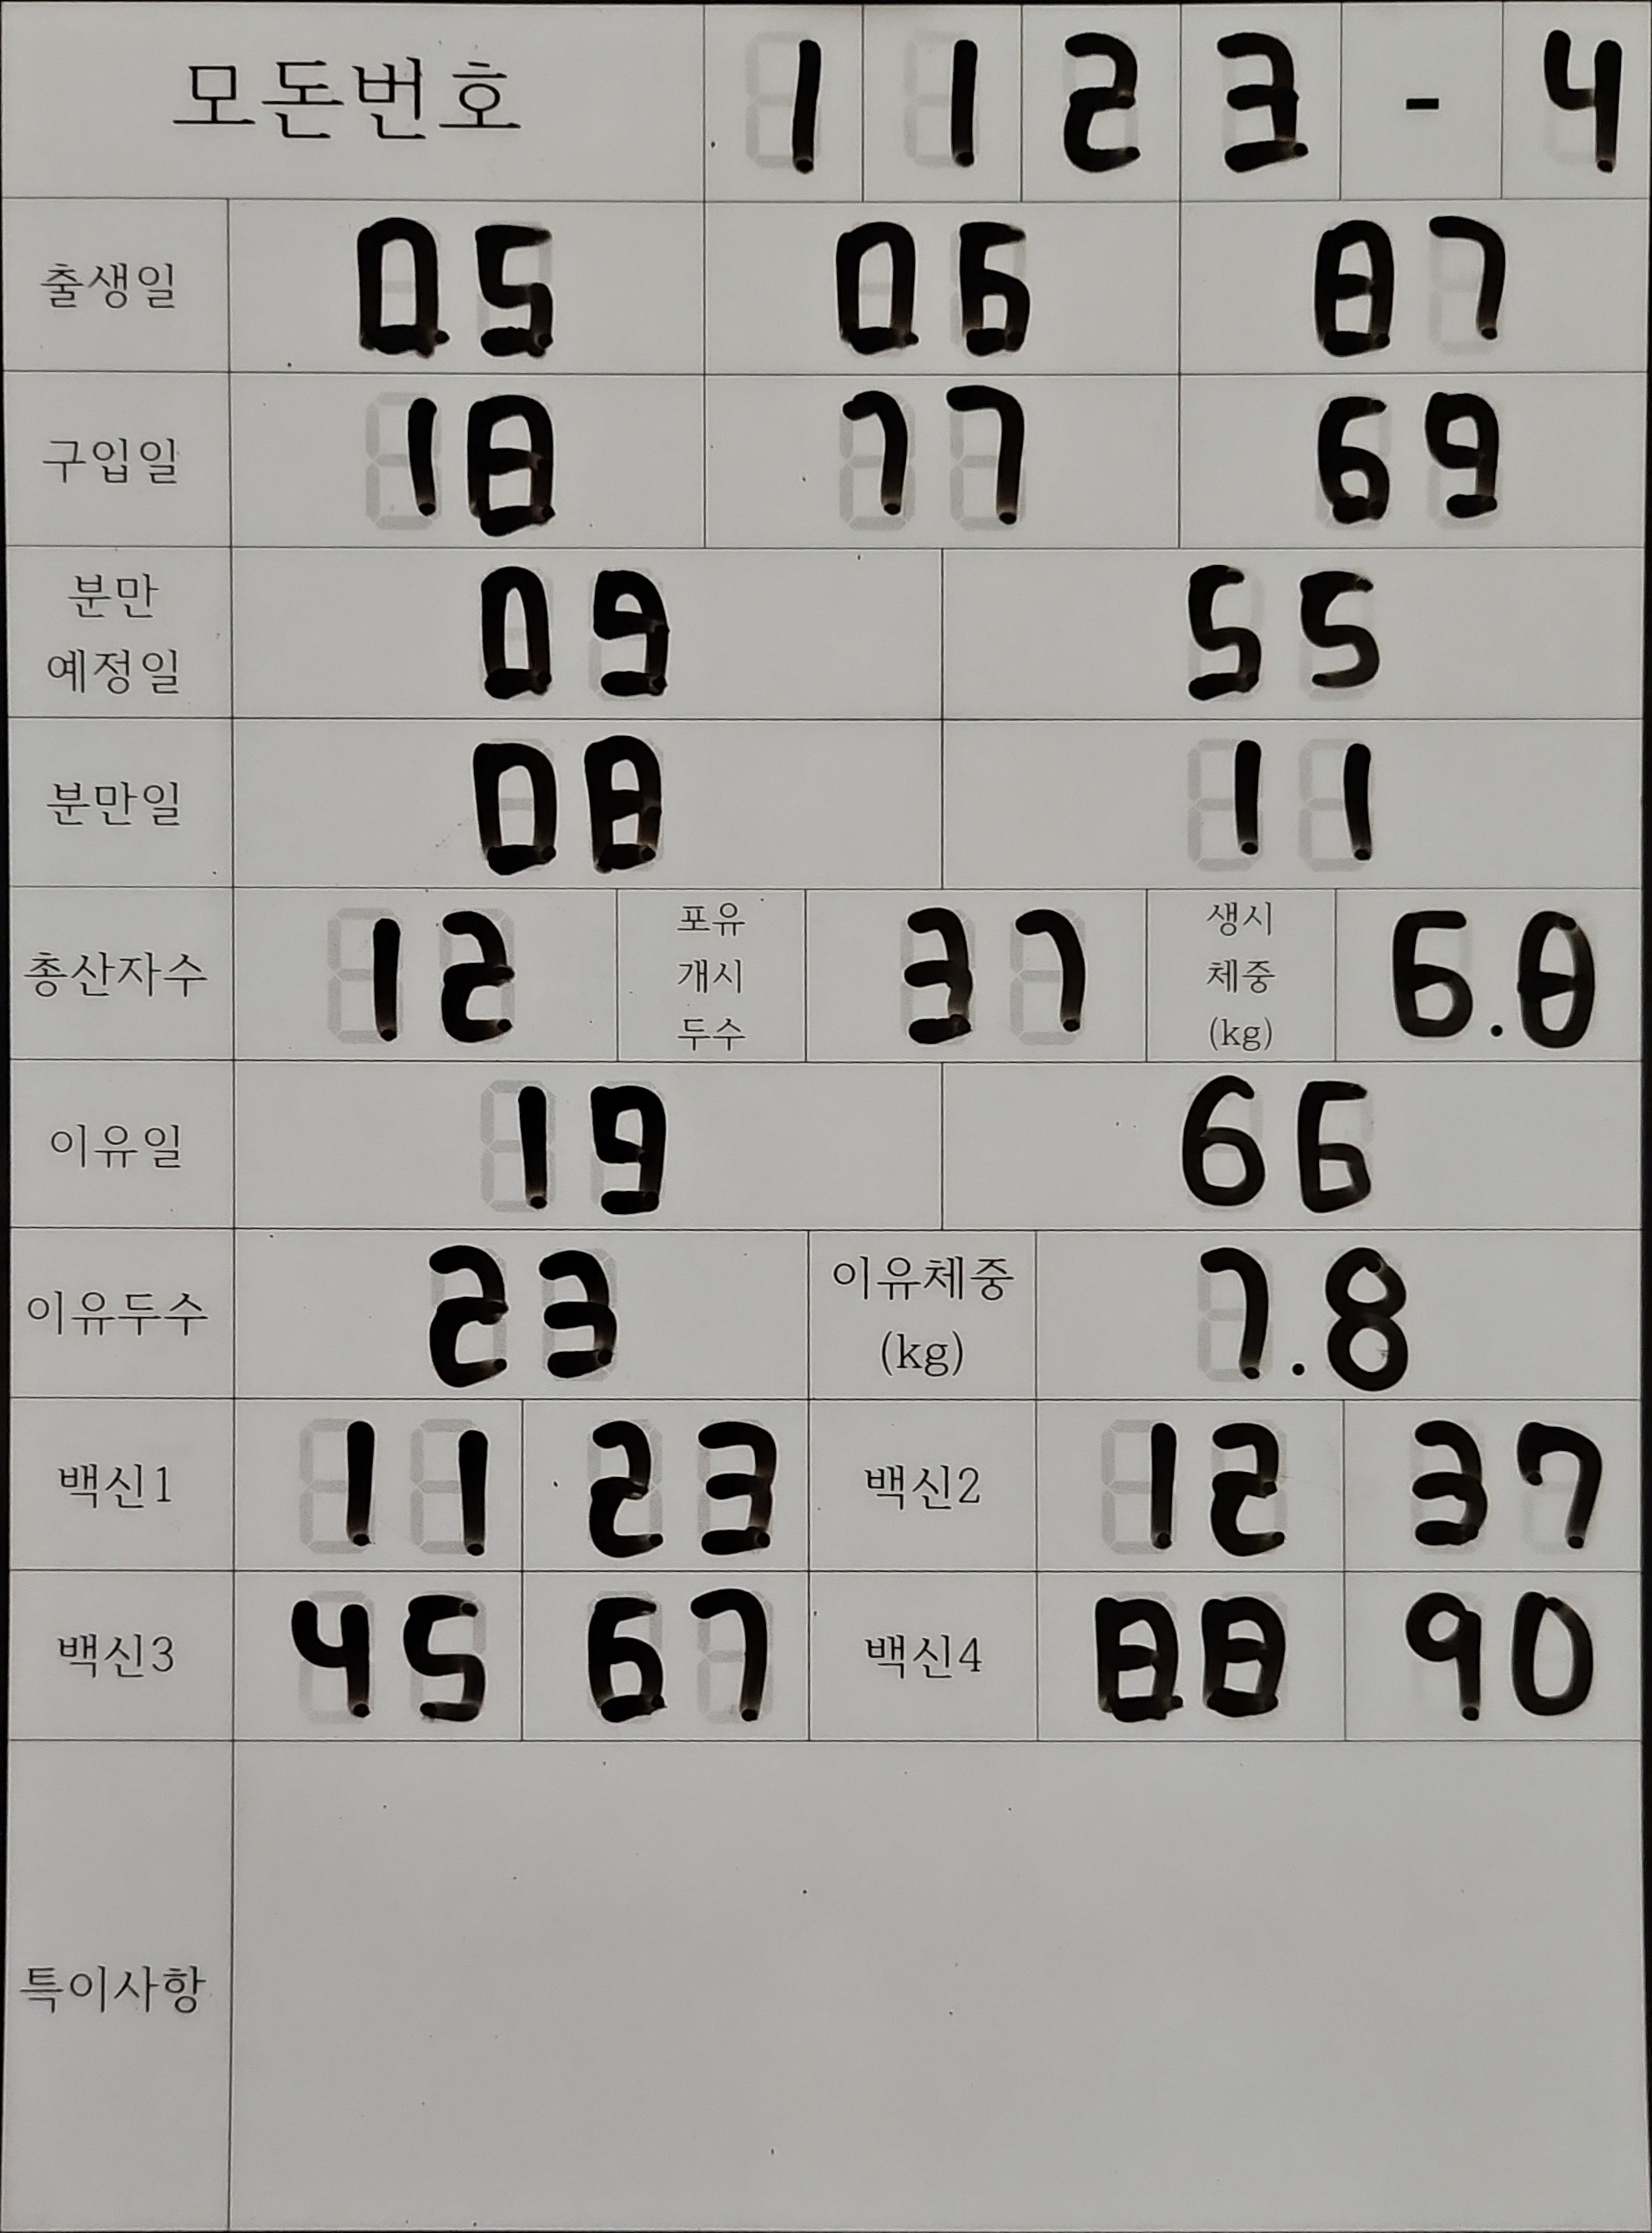 모돈번호 1 1 2 3 - 4
출생일 05 06 87
구입일 18 77 69
분만
예정일 09 55
분만일 08 11
총산자수 12 포유
개시
두수 37 생시
체중
(kg) 6.8
이유일 19 66
이유두수 23 이유체중
(kg) 7.8
백신1 11 23 백신2 12 37
백신3 45 67 백신4 88 90
특이사항